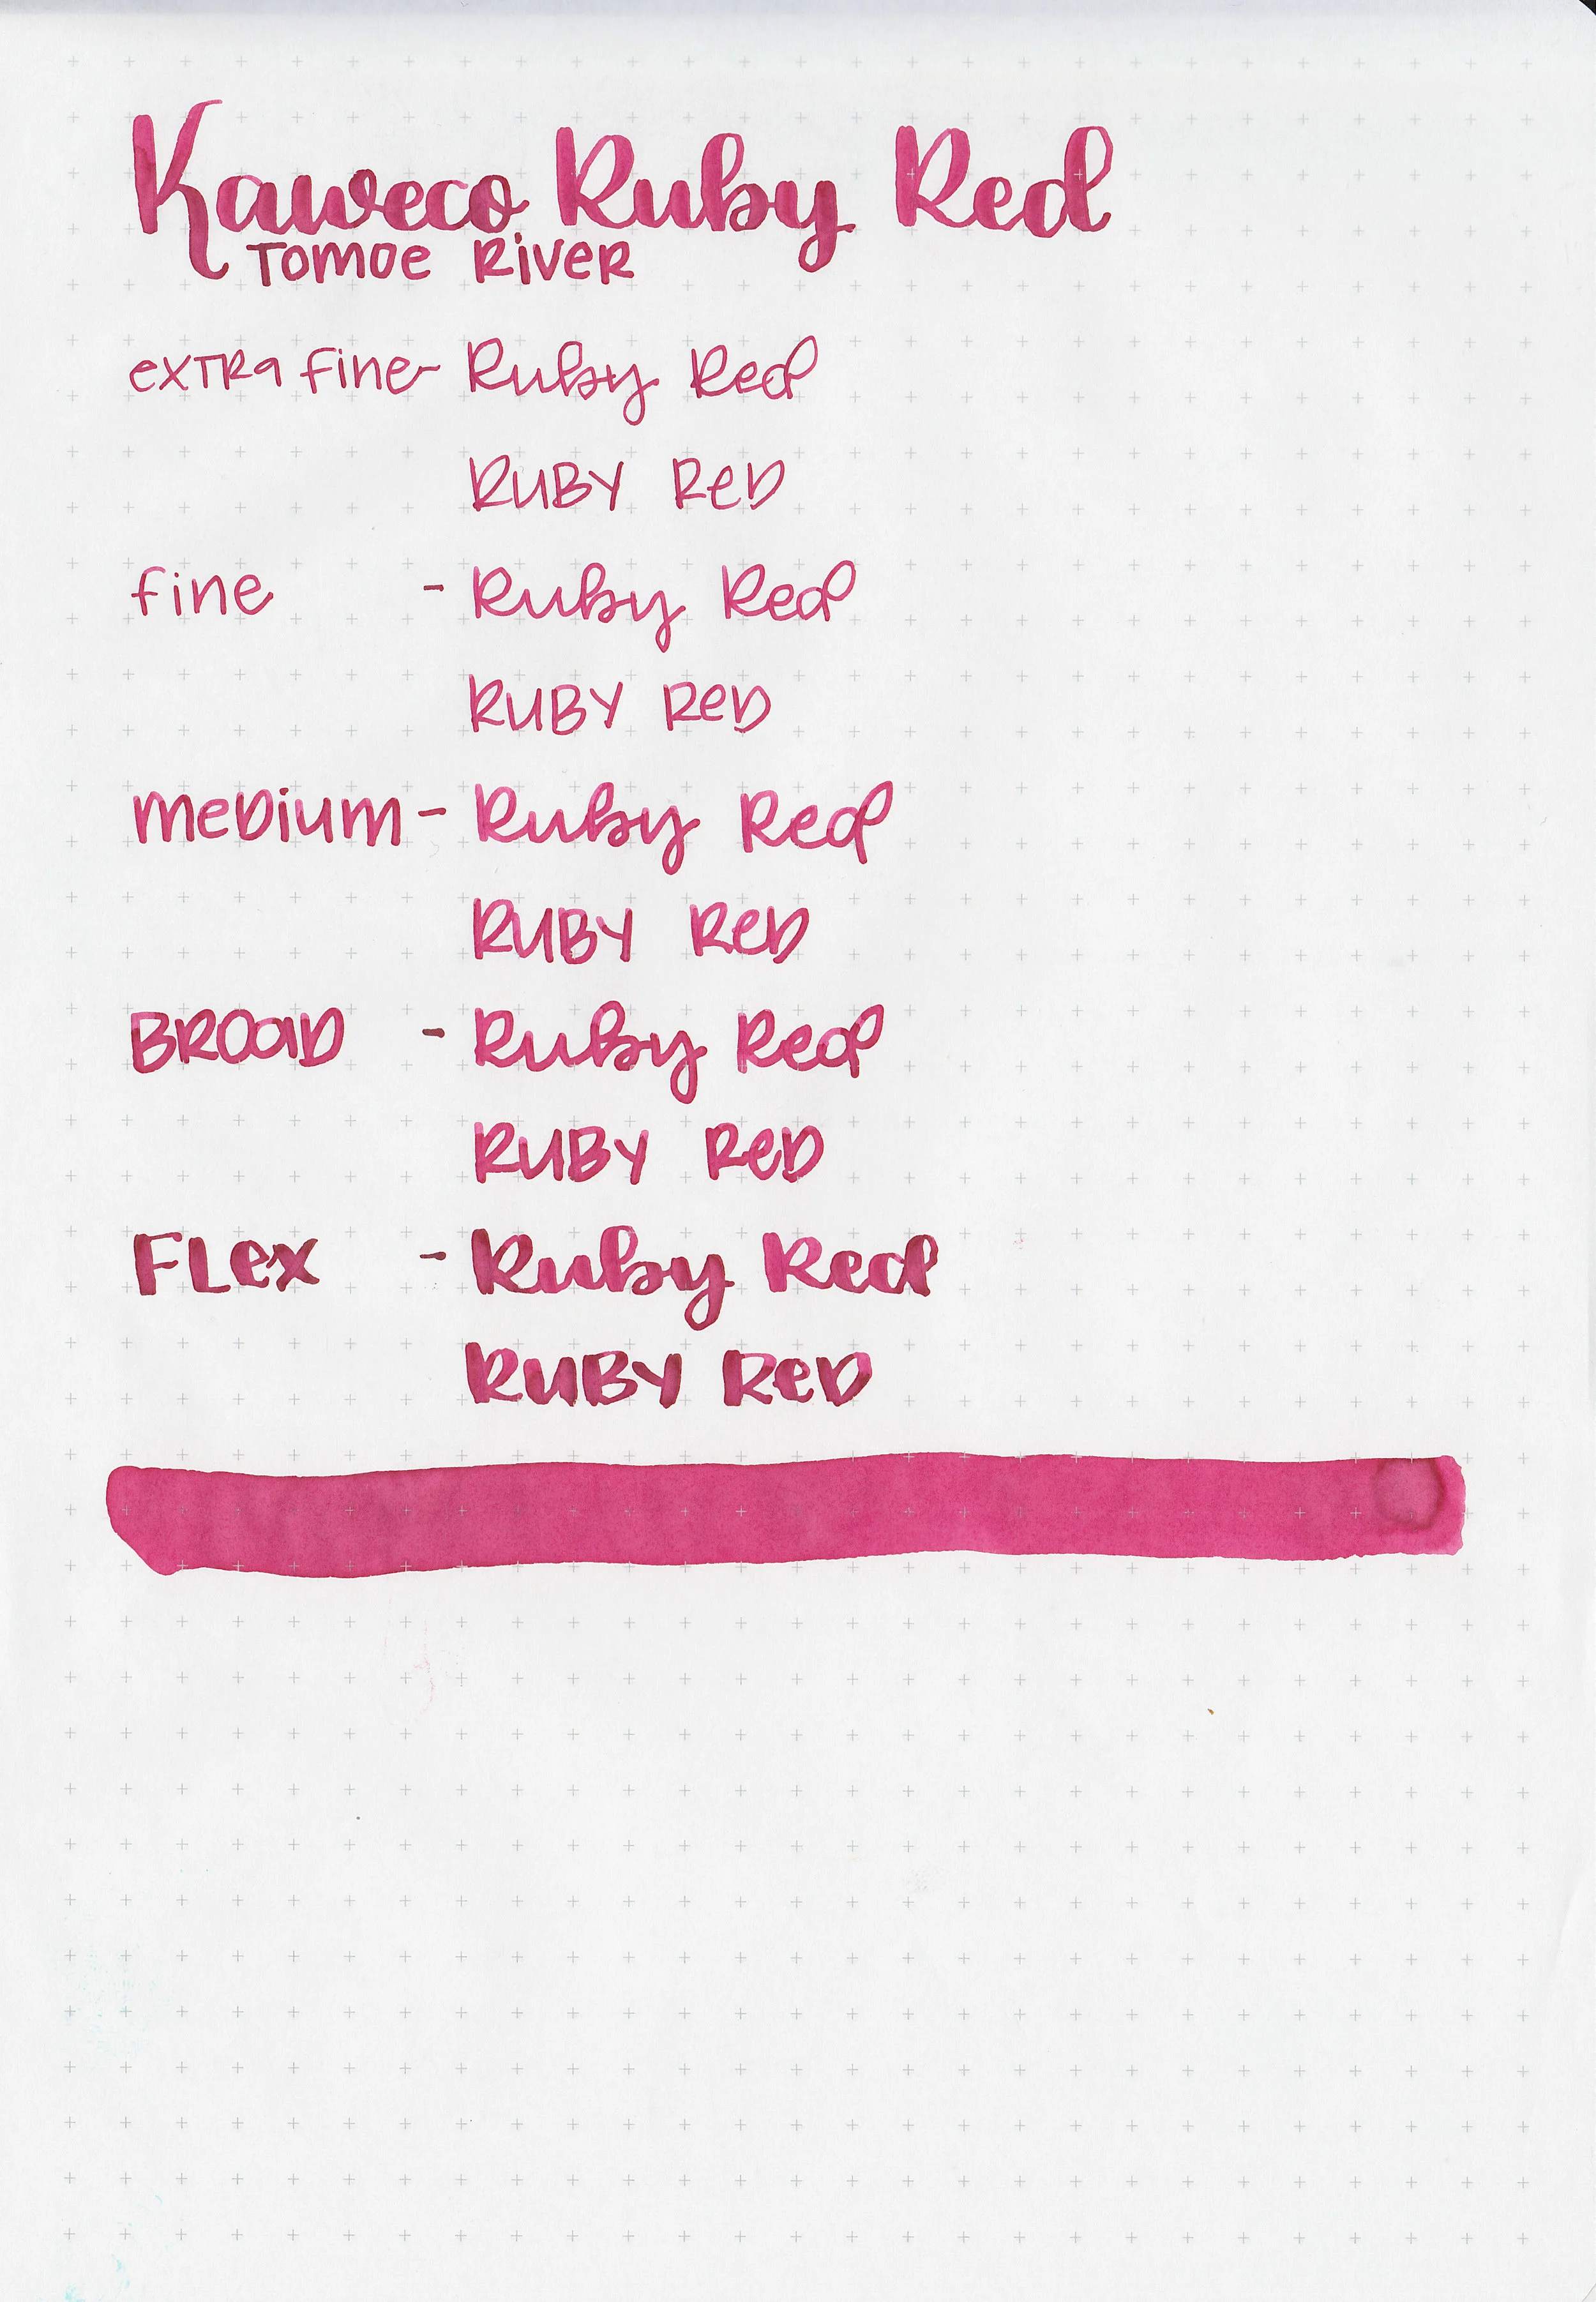 Kaweco Ruby Red
Tomoe River
extra fine- Ruby Red
Ruby Red
fine - Ruby Red
Ruby Red
Medium - Ruby Red
Ruby Red
Broad - Ruby Red
Ruby Red
Flex - Ruby Red
Ruby Red